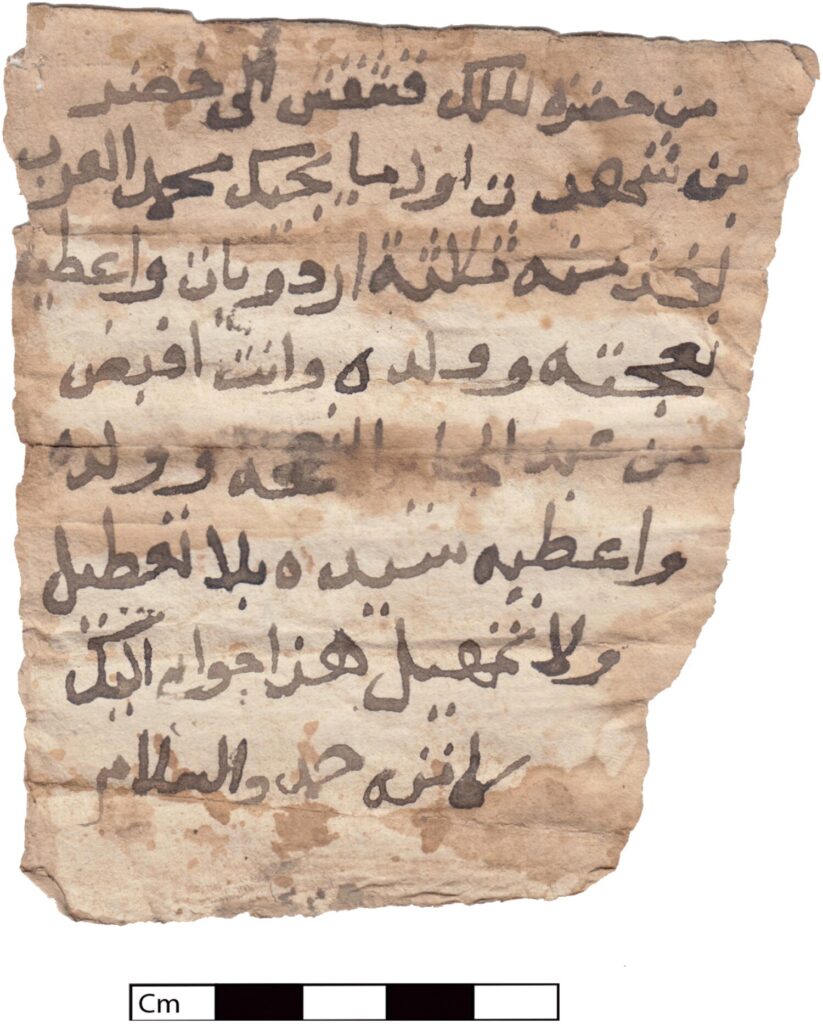 من حضره الملك قشقش الى خضر
بن شهد ت اول ما يجيك محمد العرب
تخذ منه ثلاثة اردويات واعطيه
نعجته وولده وانت اقبض
من عبد الجابر النعجه وولده
واعطيه سيده بلا تعطيل
ولا تمهيل هذا جوابي اليك
حد والسلام
Cm